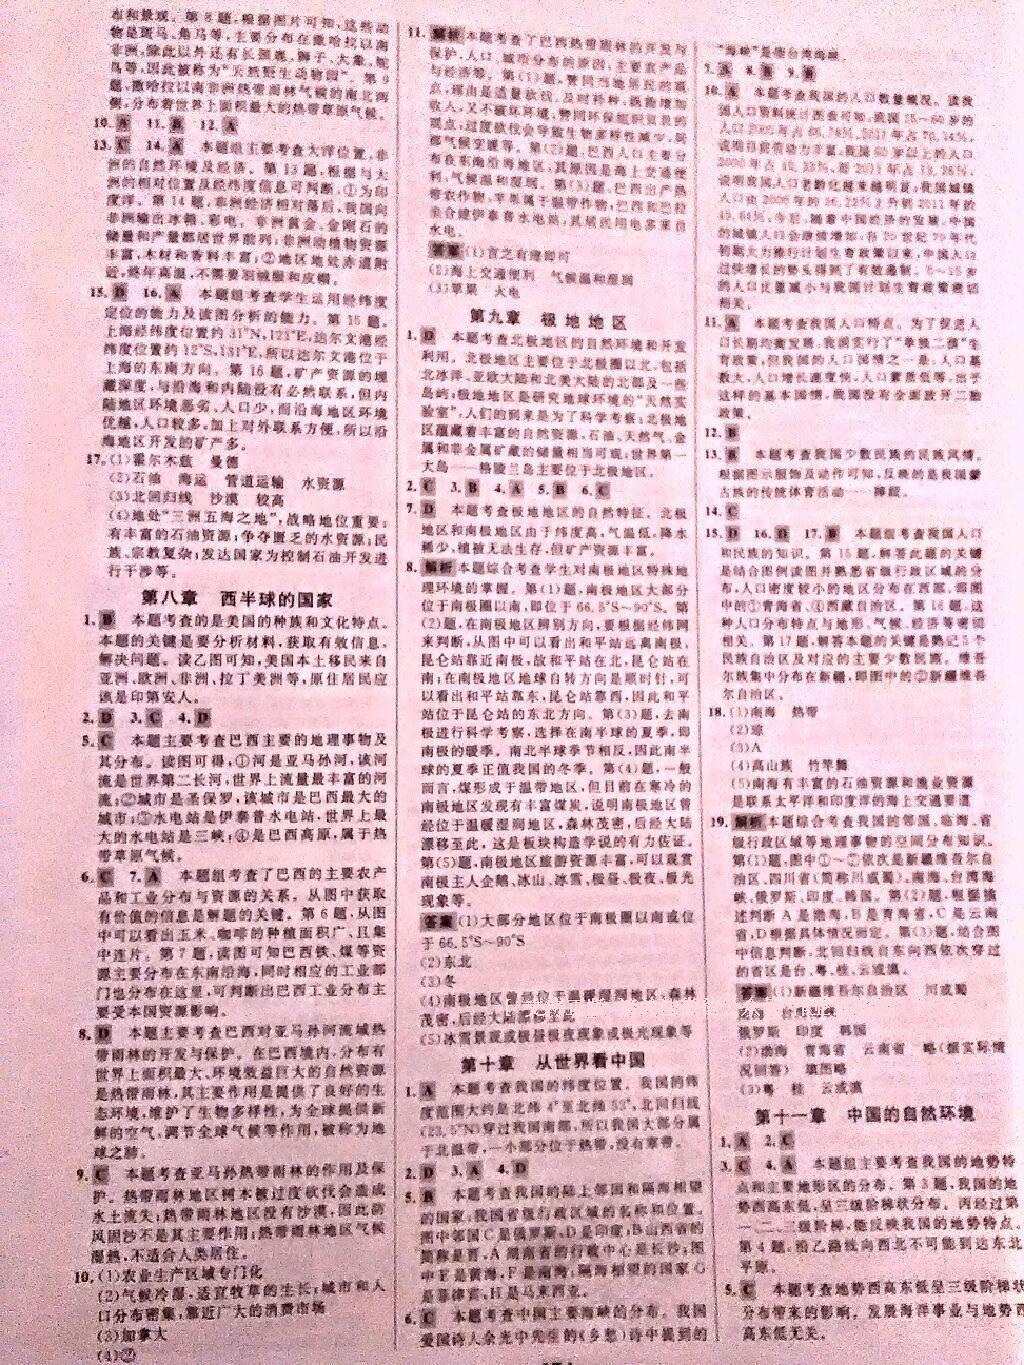 布和景观。第8题,根据图片可知,这些动
物是斑马、角马等,主要分布在撒哈拉以南
非洲,除此以外还有长颈鹿、狮子、大象、鸵
鸟等,因此被称为“天然野生动物园”。第9
题,撒哈拉以南非洲热带雨林气候的南北两
侧,分布着世界上面积最大的热带草原气候。
10. A 11. B 12. A
13. C 14. A 本题组主要考查大洋位置,非
洲的自然环境及经济。第13题,根据与大
洲的相对位置及经纬度信息可判断,①为印
度洋。第14题,非洲经济相对落后,我国向
非洲输出冰箱、彩电。非洲黄金、金刚石的
储量和产量都居世界前列;非洲动植物资源
丰富,木材和香料丰富;②地区地处赤道附
近,终年高温,不需要羽绒服和皮帽。
15. D 16. A 本题组考查学生运用经纬度
定位的能力及读图分析的能力。第15题,
上海经纬度位置约31°N,121°E,达尔文港经
纬度位置约12°S,131°E,所以达尔文港位于
上海的东南方向。第16题,矿产资源的埋
藏深度,与沿海和内陆没有必然联系,但内
陆地区环境恶劣、人口少,而沿海地区环境
优越,人口较多,加上对外联系方便,所以沿
海地区开发的矿产多。
17. (1)霍尔木兹 曼德
(2)石油 海运 管道运输 水资源
(3)北回归线 沙漠 较高
(4)地处“三洲五海之地”,战略地位重要;
有丰富的石油资源;争夺匮乏的水资源;民
族、宗教复杂;发达国家为控制石油开发进
行干涉等。
第八章 西半球的国家
1. B 本题考查的是美国的种族和文化特点。
本题的关键是要分析材料,获取有效信息,
解决问题。读乙图可知,美国本土移民来自
亚洲、欧洲、非洲、拉丁美洲等,原住居民应
该是印第安人。
2. D 3. C 4. D
5. C 本题主要考查巴西主要的地理事物及
其分布。读图可得:①河是亚马孙河,该河
流是世界第二长河,世界上流量最丰富的河
流;②城市是圣保罗,该城市是巴西最大的
城市;③水电站是伊泰普水电站,世界上最
大的水电站是三峡;④是巴西高原,属于热
带草原气候。
6. C 7. A 本题组考查了巴西的主要农产
品和工业分布与资源的关系。从图中获取
有价值的信息是解题的关键。第6题,从图
中可以看出玉米、咖啡的种植面积广,且集
中连片。第7题,读图可知巴西铁、煤等资
源主要分布在东南沿海,同时相应的工业部
门也分布在这里,可判断出巴西工业分布主
要受本国资源影响。
8. D 本题主要考查巴西对亚马孙河流域热
带雨林的开发与保护。在巴西境内,分布有
世界上面积最大、环境效益巨大的自然资源
是热带雨林,其主要作用是提供了良好的生
态环境,维护了生物多样性,为全球提供新
鲜的空气,调节全球气候等作用,被称为地
球之肺。
9. C 本题考查亚马孙热带雨林的作用及保
护。热带雨林地区树木被过度砍伐会造成
水土流失;热带雨林地区没有沙漠,因此防
风固沙不是其主要作用;热带雨林地区气候
湿热,不适合人类居住。
10. (1)农业生产区域专门化
(2)气候冷湿,适宜牧草的生长;城市和人
口分布密集,靠近广大的消费市场
(3)加拿大
(4)②
11. 解析 本题考查了巴西热带雨林的开发与
保护、人口、城市分布的原因、主要农产品
与经济等。第(1)题,赞同当地居民的观
点,理由是适量砍伐、及时补种,既能增加
收入,又不破坏环境,赞同环保组织官员的
观点:过度砍伐会导致生物多样性减少,局
部气候变暖等。第(2)题,巴西人口主要分
布在东南沿海地区,其原因是海上交通便
利、气候温和湿润。第(3)题,巴西出产热
带农作物,苹果属于温带作物;巴西和巴拉
圭合建伊泰普水电站,其居民用电多来自
水电。
答案 (1)言之有理即可
(2)海上交通便利 气候温和湿润
(3)苹果 火电
第九章 极地地区
1. D 本题考查北极地区的自然环境和开发
利用。北极地区主要位于北极圈以北,包括
北冰洋、亚欧大陆和北美大陆的北部及一些
岛屿;极地地区是研究地球环境的“天然实
验室”,人们的到来是为了科学考察;北极地
区蕴藏着丰富的自然资源,石油、天然气、金
属和非金属矿藏的储量相当可观;世界第一
大岛——格陵兰岛主要位于北极地区。
2. C 3. B 4. A 5. B 6. C
7. D 本题考查极地地区的自然特征。北极
地区和南极地区由于纬度高,气温低,降水
稀少,植被无法生存,但矿产资源丰富。
8. 解析 本题综合考查学生对南极地区特殊地
理环境的掌握。第(1)题,南极地区大部分
位于南极圈以南,即位于66.5°S~90°S。第
(2)题,在南极地区辨别方向,要根据经纬网
来判断,从图中可以看出和平站远离南极,
昆仑站靠近南极,故和平站在北,昆仑站在
南;在南极地区地球自转方向是顺时针,可
以看出和平站靠东,昆仑站靠西,因此和平
站位于昆仑站的东北方向。第(3)题,去南
极进行科学考察,选择在南半球的夏季,即
南极的暖季。南北半球季节相反,因此南半
球的夏季正值我国的冬季。第(4)题,一般
而言,煤形成于温带地区,但目前在寒冷的
南极地区发现有丰富煤炭,说明南极地区曾
经位于温暖湿润地区,森林茂密,后经大陆
漂移至此,这是板块构造学说的有力佐证。
第(5)题,南极地区旅游资源丰富,可以观赏
南极主人企鹅、冰山、冰雪,极昼、极夜、极光
现象等。
答案 (1)大部分地区位于南极圈以南或位
于66.5°S~90°S
(2)东北
(3)冬
(4)南极地区曾经位于温暖湿润地区,森林
茂密,后经大陆漂移至此
(5)冰雪景观或极昼极夜现象或极光现象等
第十章 从世界看中国
1. A 本题考查我国的纬度位置。我国的纬
度范围大约是北纬4°至北纬53°,北回归线
(23.5°N)穿过我国南部,所以我国大部分属
于北温带,一小部分位于热带,没有寒带。
2. D 3. A 4. D
5. B 本题考查我国的陆上邻国和隔海相望
的国家;我国省级行政区域的名称和位置。
图中邻国C是俄罗斯,D是印度;B山西省的
简称是晋,A湖南省的行政中心是长沙;图
中E是黄海,F是南海;隔海相望的国家G
是菲律宾,H是马来西亚。
6. C 本题考查中国主要海峡的分布。我国
爱国诗人余光中先生的《乡愁》诗中提到的
“海峡”是指台湾海峡。
7. A 8. B 9. B
10. A 本题考查我国的人口数量概况。读我
国人口资料统计图表可知,我国15~60岁的
说明目前劳动力丰富,我国60岁以上的人口
说明我国人口老龄化越来越明显;我国城镇
49.68%,今后,随着中国经济的发展,中国
的城镇人口会继续增加;自20世纪70年代
初期大力推行计划生育政策以来,中国人口
过快增长的势头得到了有效遏制。0~15岁
的人口比重减小与我国计划生育政策密切
相关。
11. A 本题考查我国人口特点。为了促进人
口长期均衡发展,我国实行了“单独二孩”生
育政策,但我国的人口国情之一是,人口基
数大,人口增长速度快,人口素质低等,出于
这样的基本国情,我国没有全面放开二胎
政策。
12. B
13. B 本题考查我国少数民族的民族风情。
根据图示服饰及动作可知,反映的是我国蒙
古族的传统体育活动——摔跤。
14. C
15. D 16. D 17. B 本题组考查我国人口
和民族的知识。第15题,解答此题的关键
是结合图例读图并熟悉省级行政区域的分
布,人口密度较小的地区分布在西部,即图
中的①青海省、④西藏自治区。第16题,这
种人口分布特点与地形、气候、经济等密切
相关。第17题,解答本题的关键是熟记5个
民族自治区及对应的主要少数民族。维吾
尔族集中分布在新疆,即图中的②新疆维吾
尔自治区。
18. (1)南海 热带
(2)琼
(3)A
(4)高山族 竹竿舞
(5)南海有丰富的石油资源和渔业资源
是联系太平洋和印度洋的海上交通要道
19. 解析 本题综合考查我国的邻国、临海、省
级行政区域等地理事物的空间分布知识。
第(1)题,图中①~⑦依次是新疆维吾尔自
治区、四川省(简称川或蜀)、南海、台湾海
峡、俄罗斯、印度、韩国。第(2)题,根据描
述判断A是渤海,B是青海省,C是云南
省,D根据具体情况而定。第(3)题,结合图
中信息判断,北回归线自东向西依次穿过
的省区是台、粤、桂、云或滇。
答案 (1)新疆维吾尔自治区 川或蜀
南海 台湾海峡
俄罗斯 印度 韩国
(2)渤海 青海省 云南省 略(据实际情
况回答) 填图略
(3)粤 桂 云或滇
第十一章 中国的自然环境
1. A 2. C
3. C 4. A 本题组主要考查我国的地势特
点和主要地形区的分布。第3题,我国的地
势西高东低,呈三级阶梯状分布。丙经过第
一、二、三级阶梯,能反映我国的地势特点。
第4题,沿乙路线向西北不可能到达东北
平原。
5. C 本题考查地势西高东低呈三级阶梯状
分布带来的影响。发展海洋事业与地势西
高东低无关。